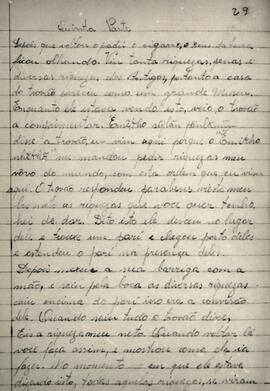 29
Quinta Parte
Depois que soltou o padú e cigarro, o deus da terra
ficou olhando. Viu tanta riquezas, penas e
diversas riquezas dos Antigos, portanto a casa
do trovão parecia como um grande Museu.
Enquanto ele estava vendo isto, veio o trovão
a comprimentar. Emëkho
disse a trovão, eu vim aqui porque o Emëkho
me mandou pedir riquezas meu
vovô do mundo, com esta ordem que eu vim
aqui. O trovão respondeu parabens vieste meu
neto as riquezas que voce quer. Tenho,
hei de dar. Dito isto ele desceu no lugar
dele e trouxe um pari e chegou perto deles
e estendeu o pari na presença deles.
Depois mexeu a sua barriga com a
mão, e saiu pela boca as diversas riquezas
caiu encima do pari isso era a conversão
dele. Quando saiu tudo o trovão disse,
Eis a riqueza meu neto. Quando voltar lá
você faça assim, e mostrou como ele ia
fazer. No momento em que ele estava
dizendo isto, todas aquelas riquezas, se viram